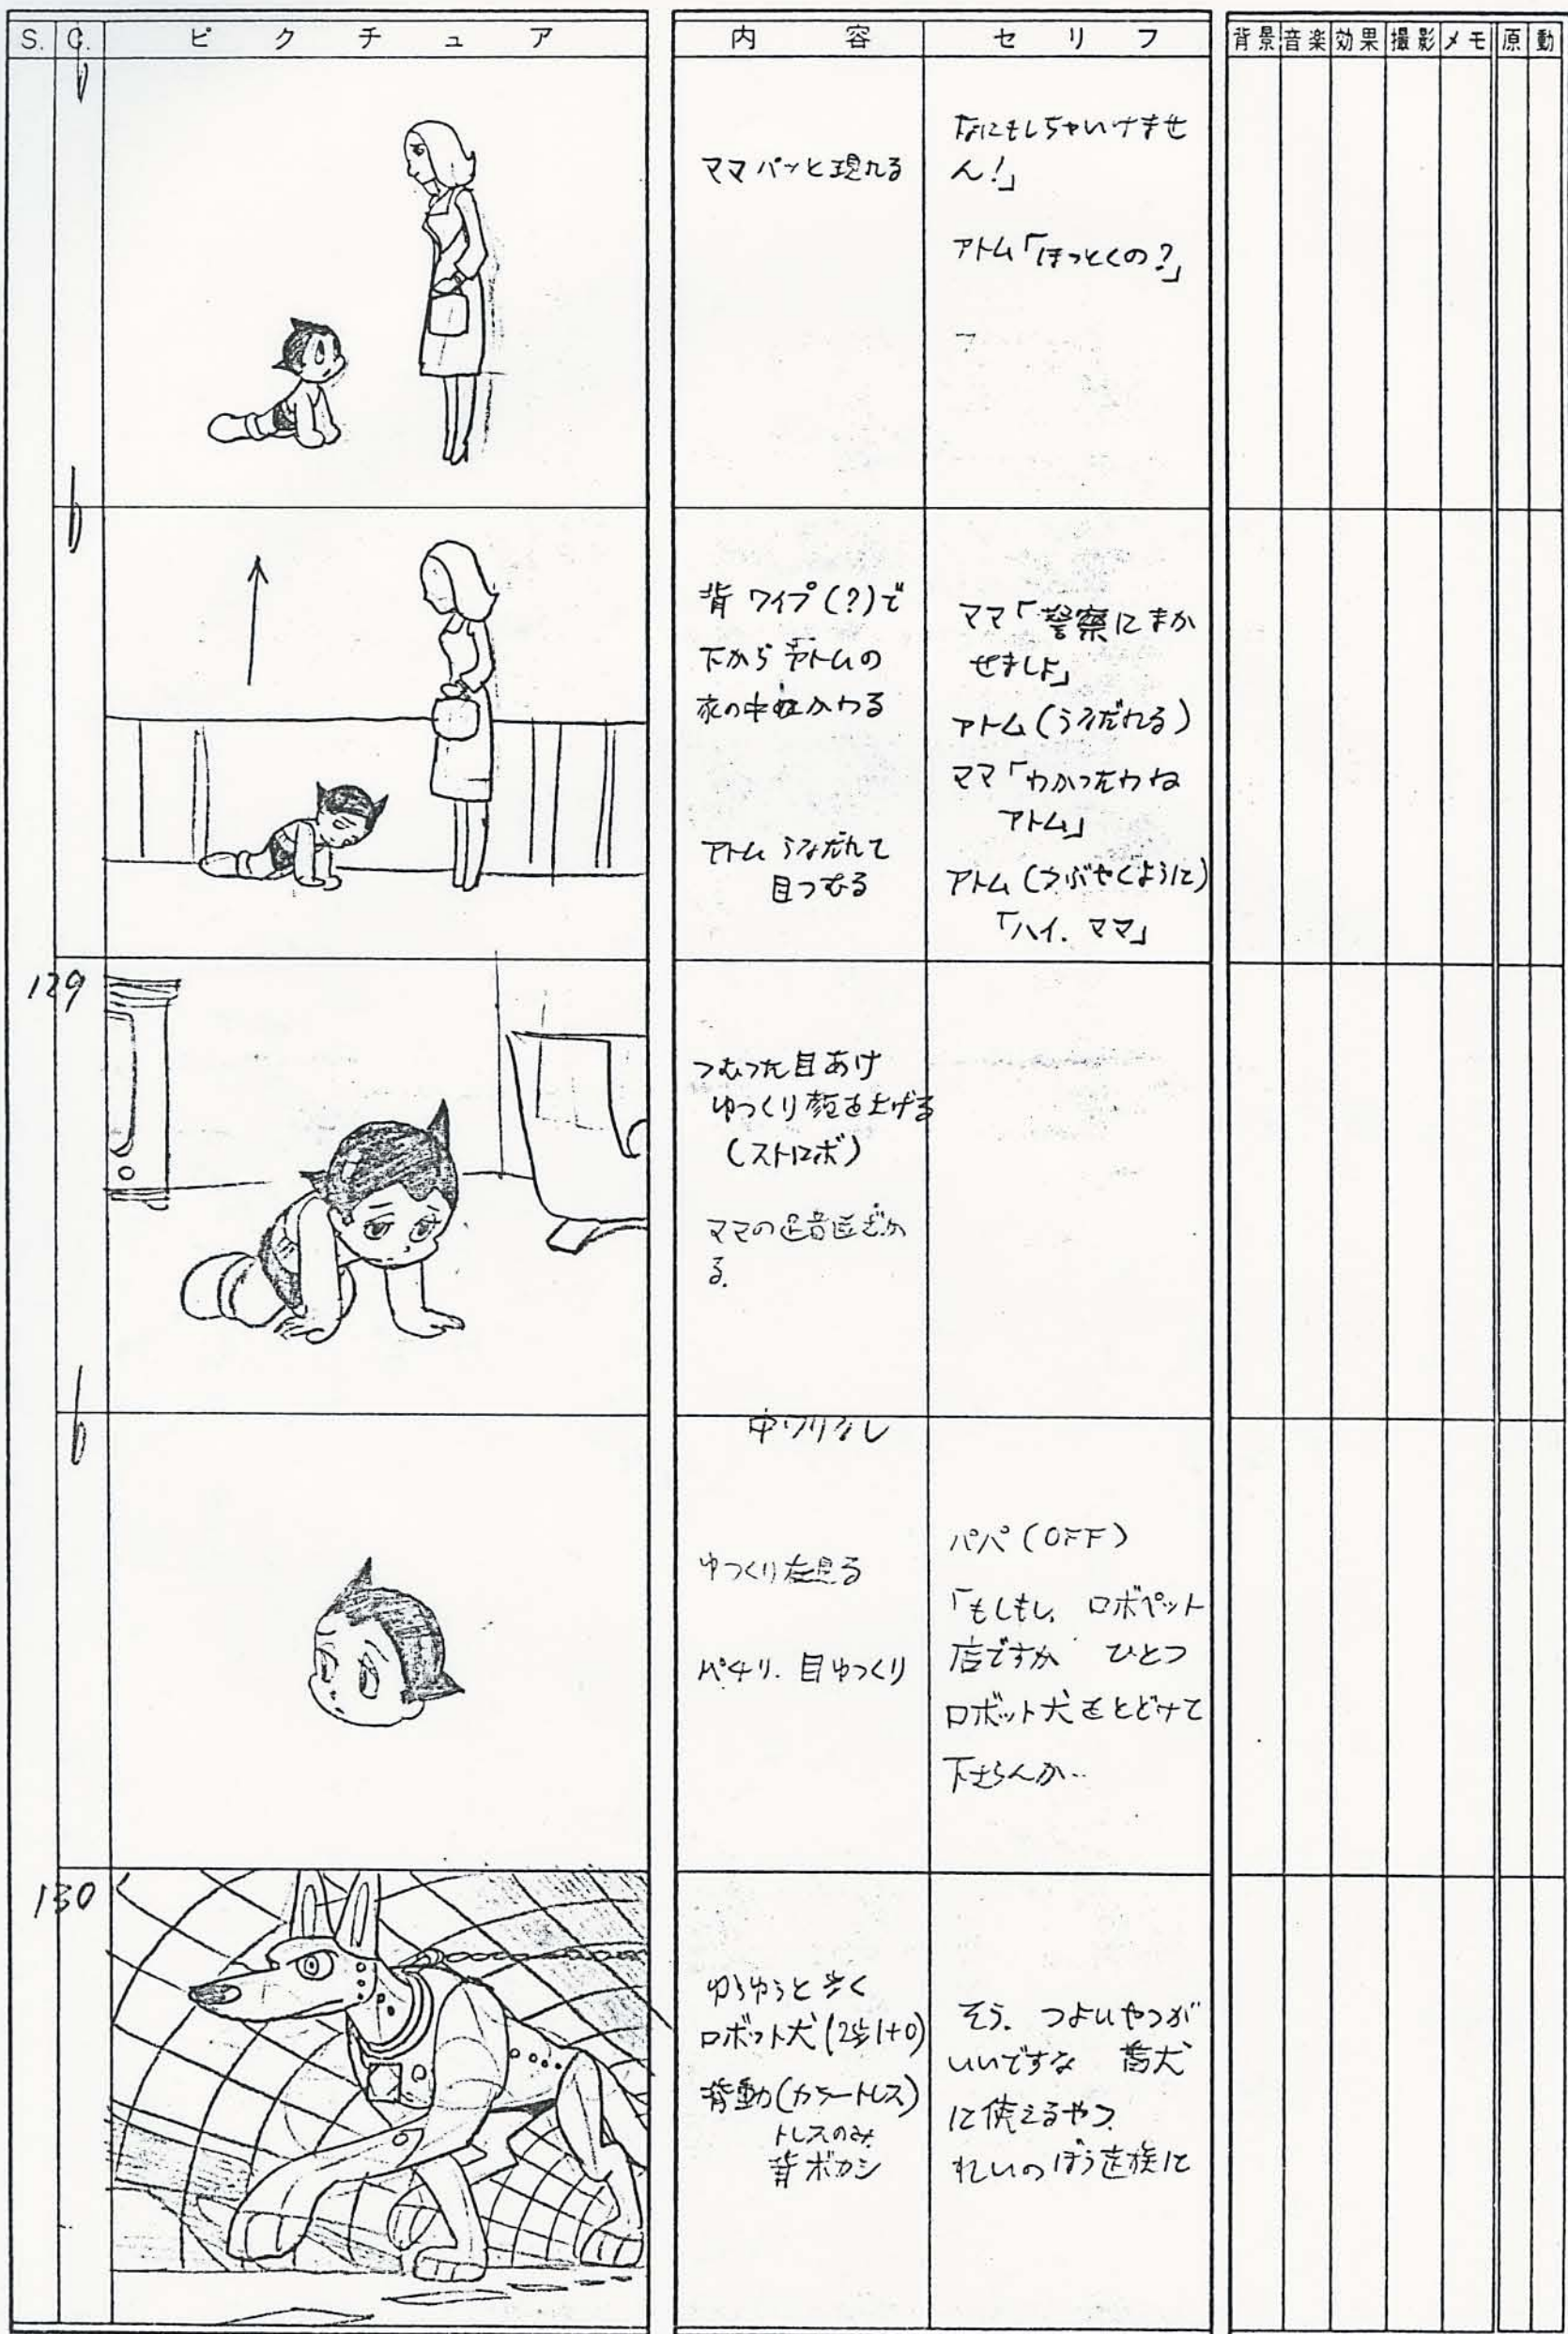 S. C. ピクチュア 内容 セリフ 背景 音楽 効果 撮影 メモ 原 動
ママ パッと現れる
なにもしちゃいけませ
ん!」
アトム「ほっとくの?」
背 ワイプ(?)で
下から アトムの
家の中にかわる
アトム うなだれて
目つむる
ママ「警察にまか
せましょ」
アトム(うなだれる)
ママ「わかったわね
アトム」
アトム(つぶやくように)
「ハイ. ママ」
129
つむった目あけ
ゆっくり顔を上げる
(ストロボ)
ママの足音遠ざか
る.
中ワリなし
ゆっくり左見る
パチリ. 目ゆっくり
パパ(OFF)
「もしもし. ロボペット
店ですか ひとつ
ロボット犬をとどけて
下さらんか…
130
ゆうゆうと歩く
ロボット犬(2歩1+0)
背動(カラートレス)
トレスのみ
背ボカシ
そう. つよいやつが
いいですな 番犬
に使えるやつ
れいのぼう走族に